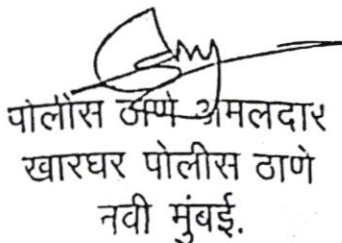 पोलीस ठाणे अमलदार
खारघर पोलीस ठाणे
नवी मुंबई.